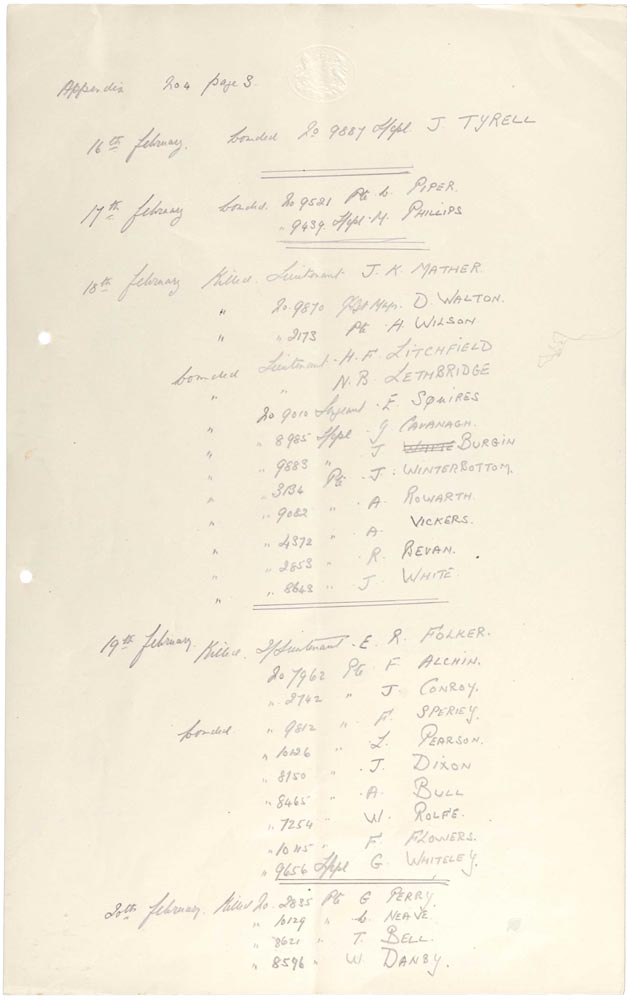 Appendix No 4 page 3.
16th February. Wounded No 9887 L/Cpl J. TYRELL
17th February Wounded. No 9521 Pte C. PIPER.
" 9439 L/Cpl M. PHILLIPS
18th February Killed. Lieutenant J. K. MATHER.
" No. 9870 D. WALTON.
" " 2173 Pte H. WILSON
Wounded Lieutenant H. F. LITCHFIELD
" " N. B. LETHBRIDGE
" No 9010 Sergeant E SQUIRES
" " 8985 L/Cpl G. CAVANAGH.
" " 9883 " J WHITE BURGIN
" " 3134 Pte J. WINTERBOTTOM.
" " 9082 " A. ROWARTH.
" " 4372 " A. VICKERS.
" " 2853 " R. BEVAN.
" " 8643 " J. WHITE.
19th February Killed. 2/Lieutenant E. R. FOLKER.
No 7962 Pte F. ALCHIN.
" 2742 " J. CONROY.
Wounded. " 9812 " F. SPERIEY.
" 10126 " L. PEARSON.
" 8150 " J. DIXON
" 8465 " A. BULL
" 7254 " W. ROLFE.
" 10115 " F. FLOWERS.
" 9656 L/Cpl G. WHITELEY.
20th February. Killed No. 2835 Pte G PERRY.
" 10129 " C. NEAVE.
" 8621 " T. BELL.
" 8596 " W. DANBY.